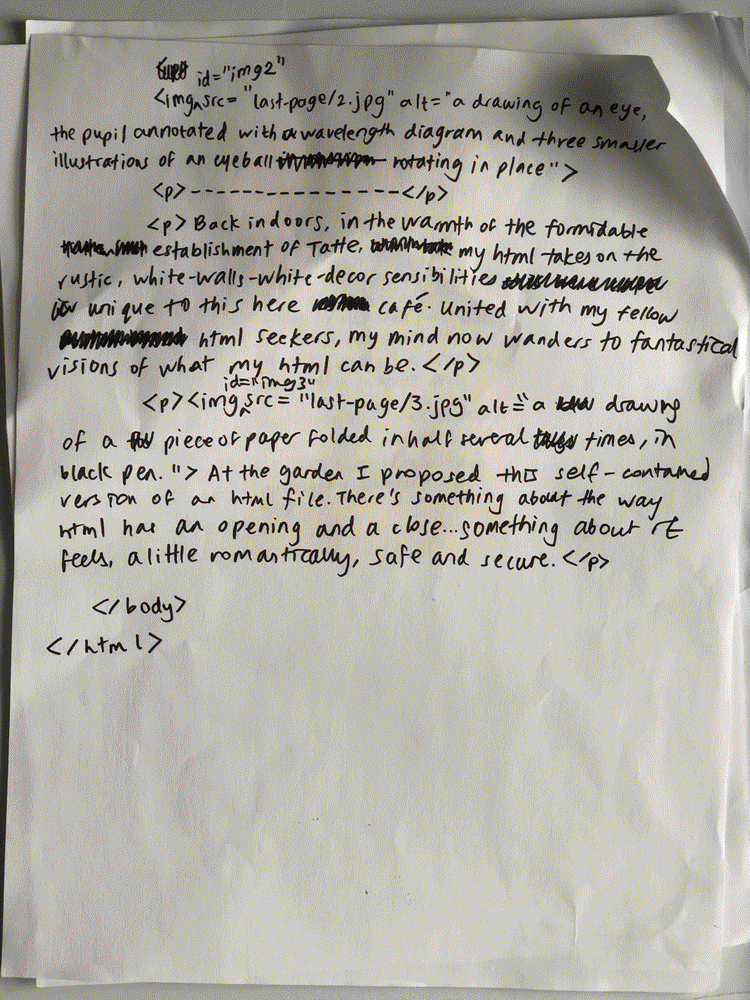 id="img2"
<img src="last-page/2.jpg" alt="a drawing of an eye,
the pupil annotated with a wavelength diagram and three smaller
illustrations of an eyeball rotating in place">
<p>----------------</p>
<p> Back indoors, in the warmth of the formidable
establishment of Tatte, my html takes on the
rustic, white-walls-white-decor sensibilities
unique to this here café. United with my fellow
html seekers, my mind now wanders to fantastical
visions of what my html can be.</p>
id="img3"
<p><img src="last-page/3.jpg" alt="a drawing
of a piece of paper folded in half several times, in
black pen."> At the garden I proposed this self-contained
version of an html file. There's something about the way
html has an opening and a close...something about it
feels, a little romantically, safe and secure.</p>
</body>
</html>